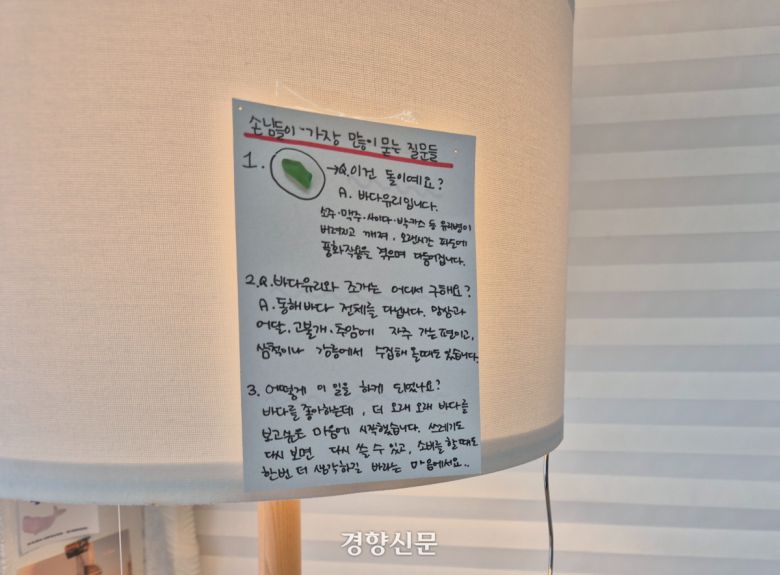 손님들이 가장 많이 묻는 질문들
1. →Q.이건 돌이예요?
A. 바다유리입니다.
소주·맥주·사이다·박카스 등 유리병이
버려지고 깨져, 오랜시간 파도에
풍화작용을 겪으며 다듬어집니다.
2.Q.바다유리와 조개는 어디서 구해요?
A.동해바다 전체를 다닙니다. 망상과
어달, 고불개·추암에 자주 가는 편이고,
삼척이나 강릉에서 수집해 올때도 있습니다.
3. 어떻게 이 일을 하게 되었나요?
바다를 좋아하는데, 더 오래 오래 바다를
보고싶은 마음에 시작했습니다. 쓰레기도
다시 보면 다시 쓸 수 있고, 소비를 할 때도
한번 더 생각하길 바라는 마음에서요..
경향신문